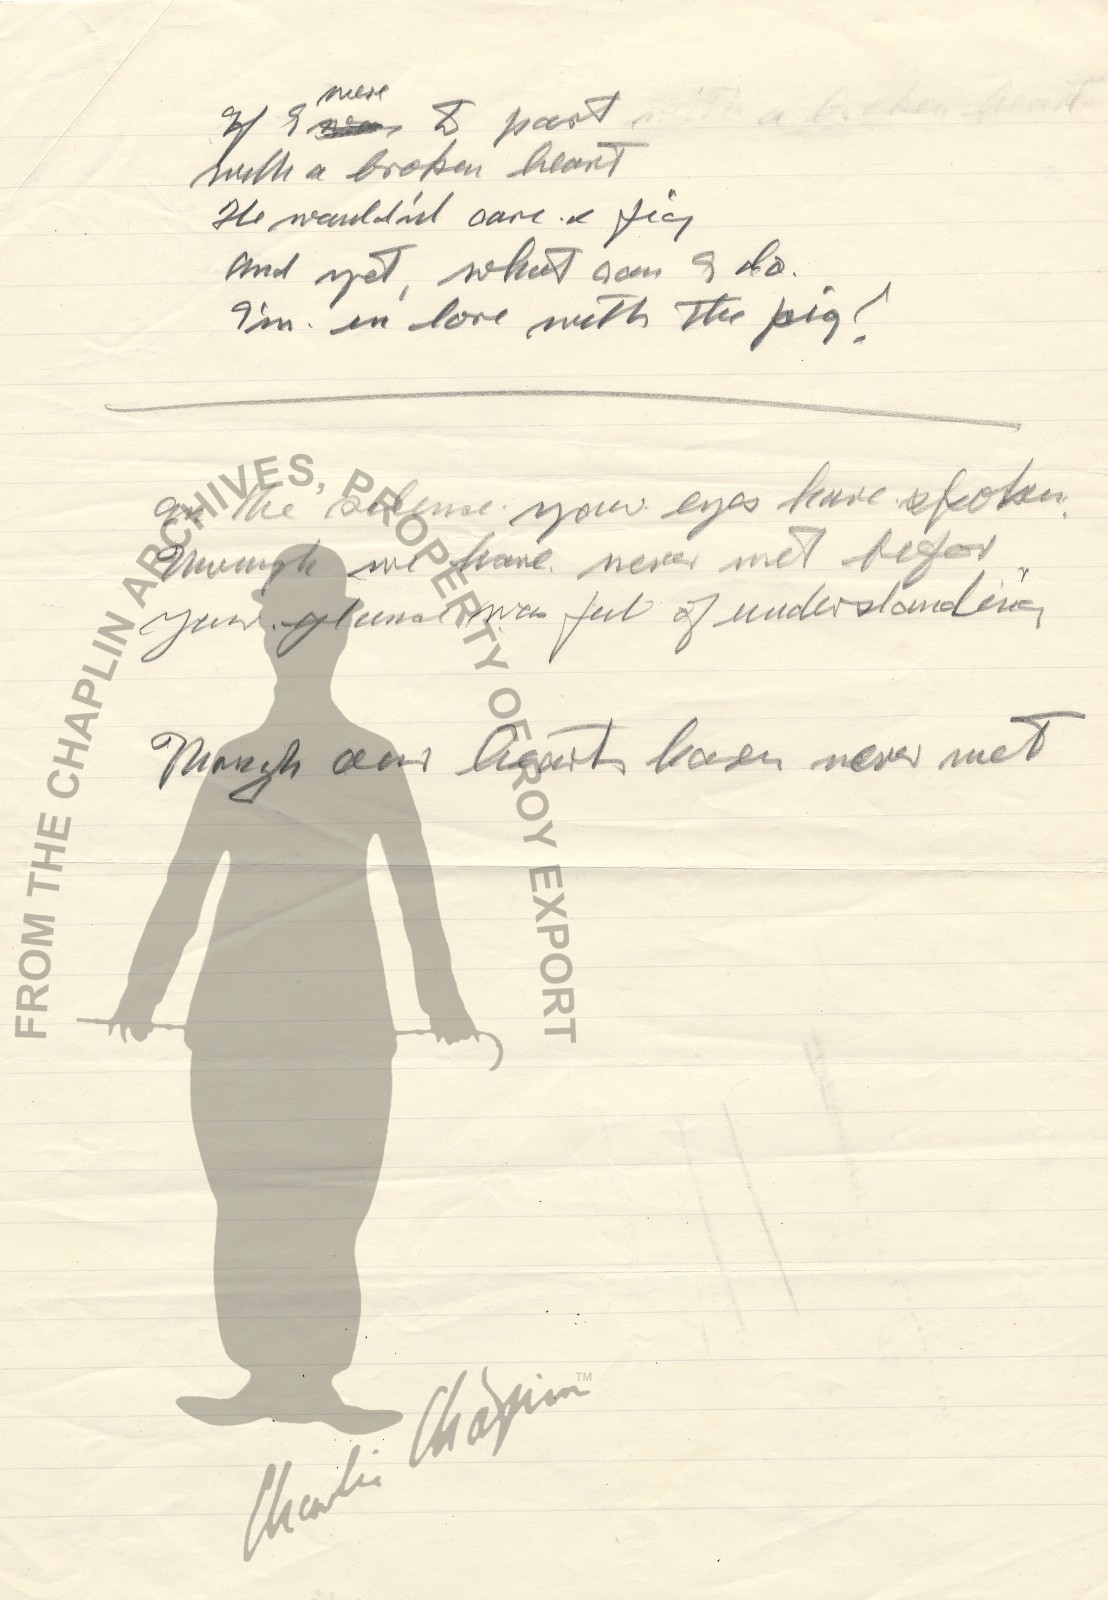 were
If I was to part with a broken heart
with a broken heart
He would'nt care a fig
and yet, what can I do.
I'm in love with the pig!
In the silence your eyes have spoken.
Though we have never met befor
your was ful of understanding
Though our hearts have never met
FROM THE CHAPLIN ARCHIVES, PROPERTY OF ROY EXPORT
Charlie Chaplin TM